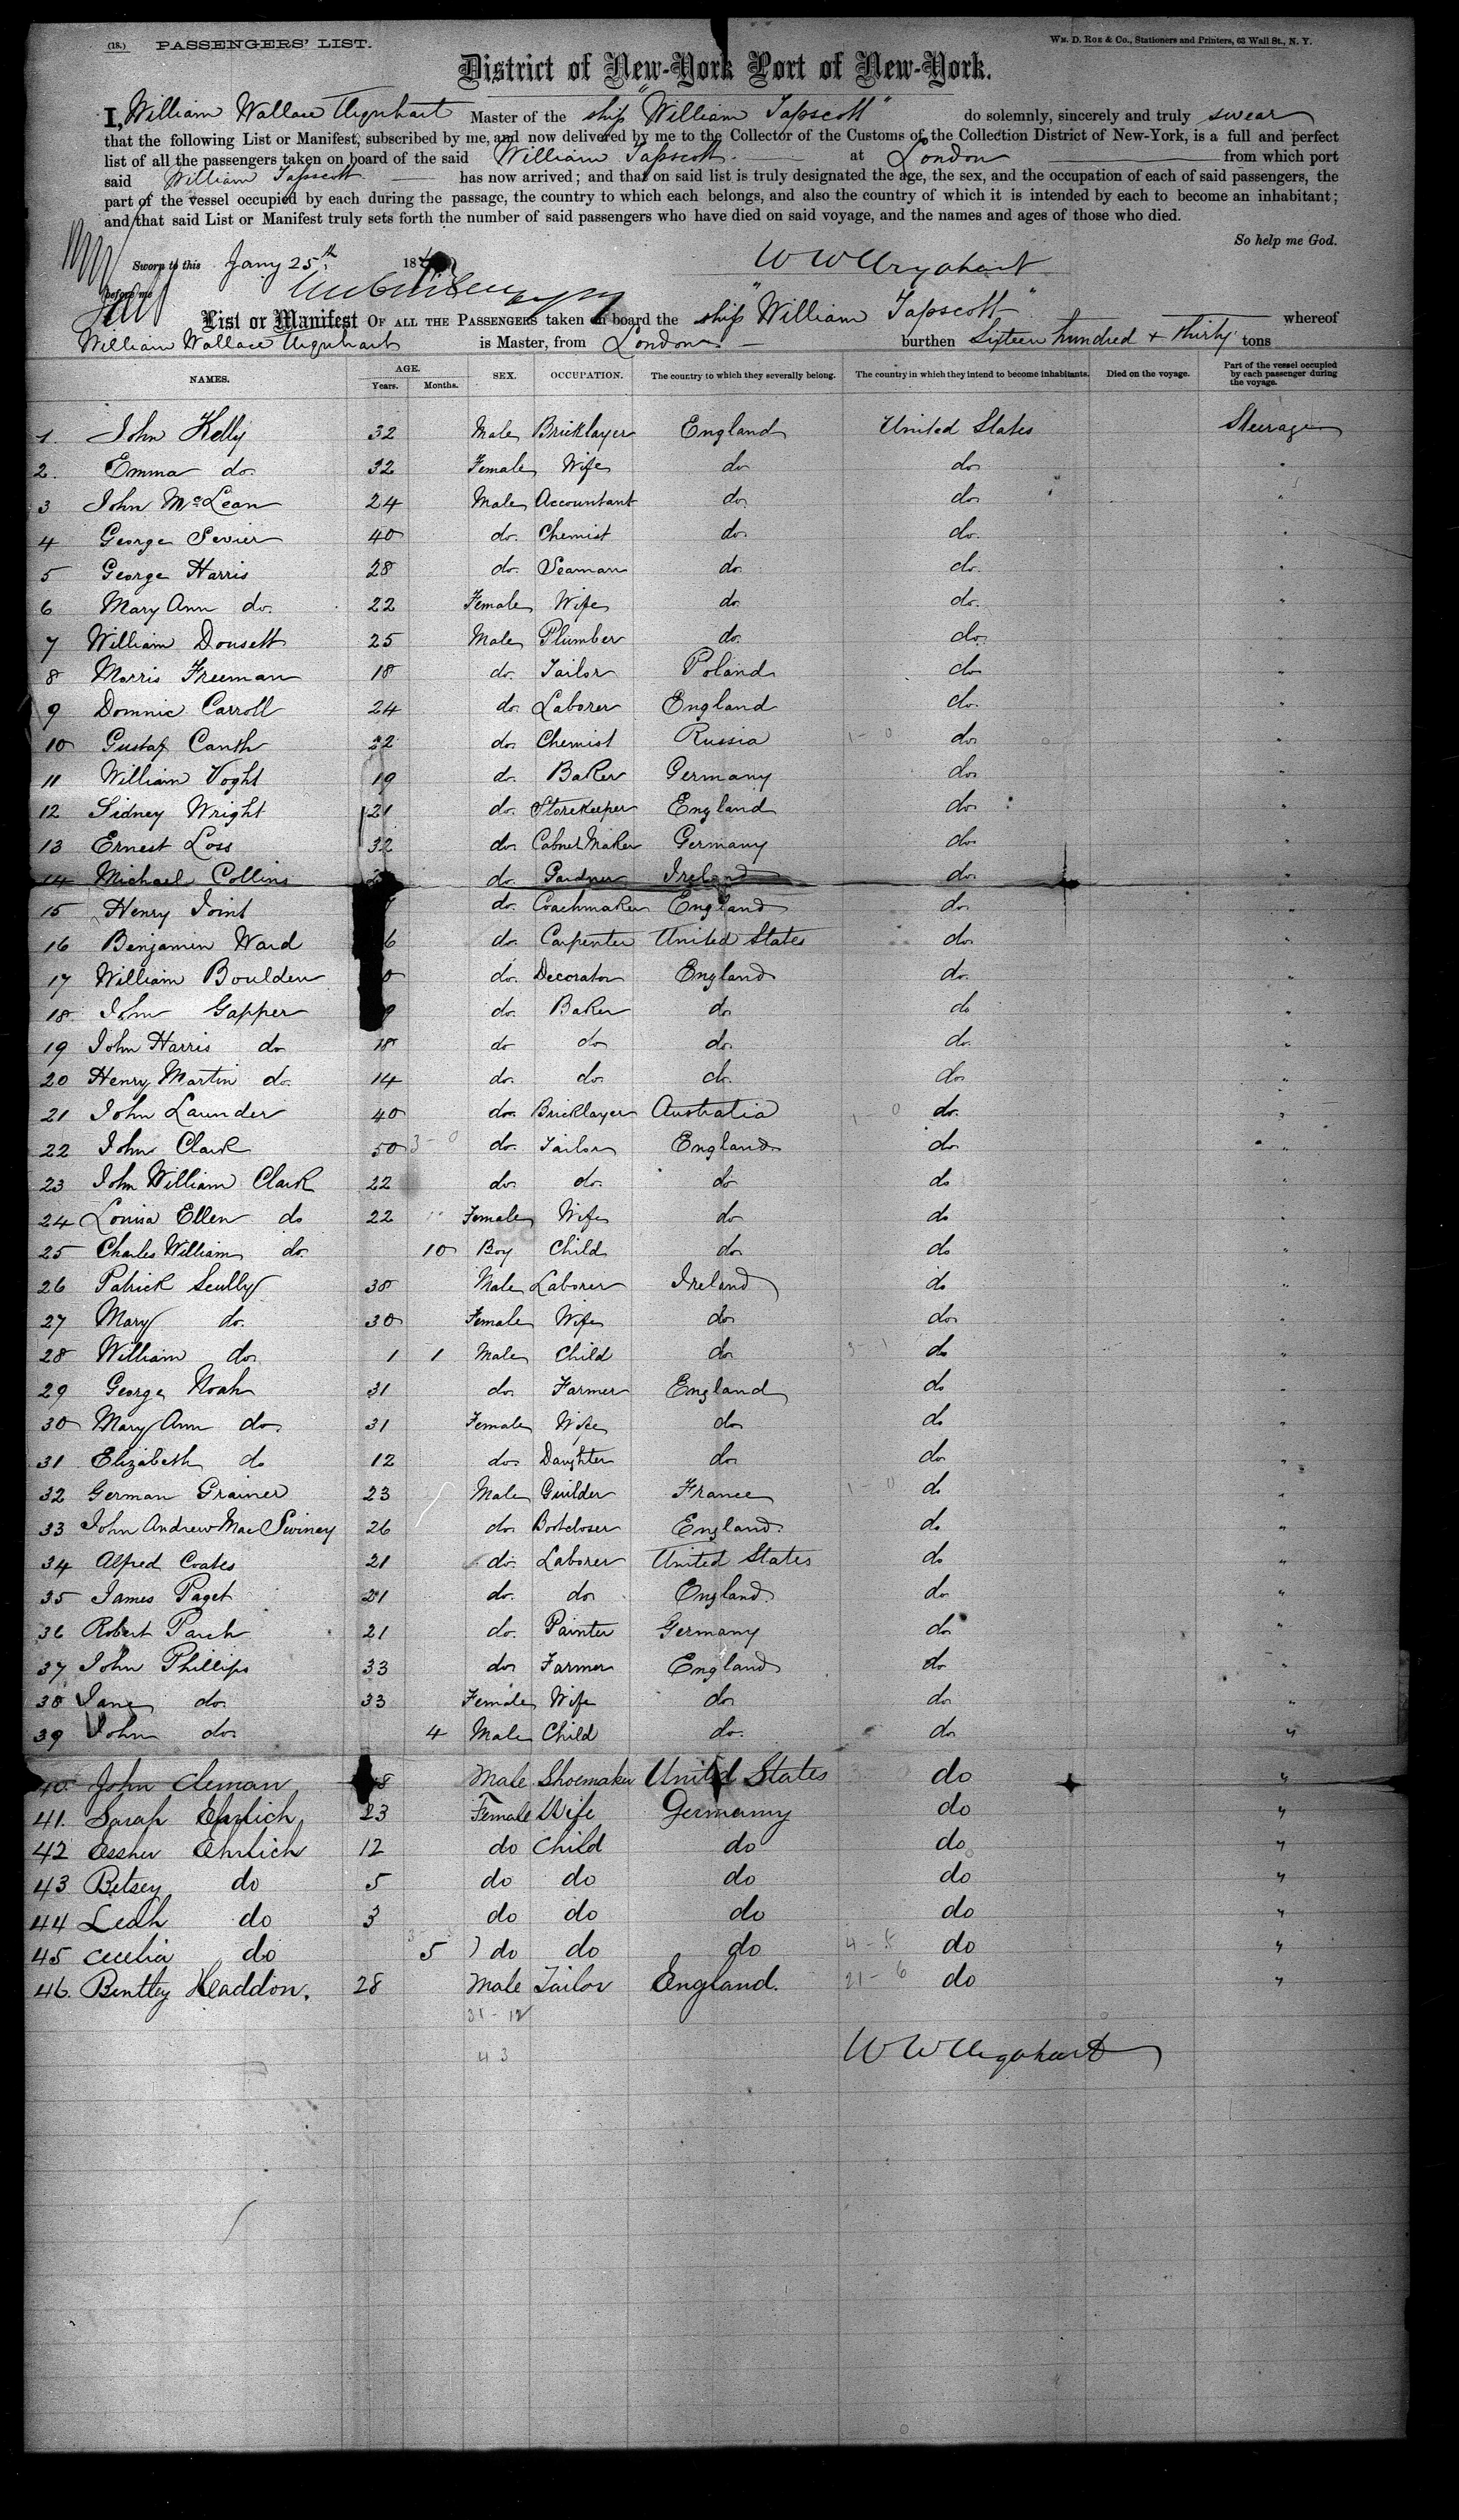 (18.) PASSENGERS' LIST.
Wm. D. Roe & Co., Stationers and Printers, 63 Wall St., N. Y.
District of New-York Port of New-York.
I, William Wallace Urquhart Master of the ship "William Tapscott" do solemnly, sincerely and truly swear
that the following List or Manifest, subscribed by me, and now delivered by me to the Collector of the Customs of the Collection District of New-York, is a full and perfect
list of all the passengers taken on board of the said William Tapscott at London from which port
said William Tapscott has now arrived; and that on said list is truly designated the age, the sex, and the occupation of each of said passengers, the
part of the vessel occupied by each during the passage, the country to which each belongs, and also the country of which it is intended by each to become an inhabitant;
and that said List or Manifest truly sets forth the number of said passengers who have died on said voyage, and the names and ages of those who died.
So help me God.
Sworn to this Jany 25th 18
W W Urquhart
before me
List or Manifest OF ALL THE PASSENGERS taken on board the ship "William Tapscott" whereof
William Wallace Urquhart is Master, from London burthen Sixteen hundred + thirty tons
NAMES. AGE. Years. Months. SEX. OCCUPATION. The country to which they severally belong. The country in which they intend to become inhabitants. Died on the voyage. Part of the vessel occupied by each passenger during the voyage.
1. John Kelly 32 Male Bricklayer England United States Steerage
2. Emma do. 32 Female Wife do do "
3 John McLean 24 Male Accountant do do "
4 George Sevier 40 do. Chemist do do. "
5 George Harris 28 do. Seaman do do. "
6 Mary Ann do. 22 Female Wife do do. "
7 William Dousett 25 Male Plumber do. do. "
8 Morris Freeman 18 do. Tailor Poland do "
9 Domnic Carroll 24 do. Laborer England do. "
10 Gustaf Canth 22 do. Chemist Russia do. "
11 William Voght 19 do. Baker Germany do "
12 Sidney Wright 21 do. Storekeeper England do "
13 Ernest Loss 32 do. Cabnet Maker Germany do. "
14 Michael Collins do. Gardner Ireland do. "
15 Henry Joint do. Coachmaker England do. "
16 Benjamin Ward 6 do. Carpenter United States do. "
17 William Boulden 0 do. Decorator England do. "
18. John Gapper 9 do. Baker do do "
19 John Harris do 18 do do do. do. "
20 Henry Martin do. 14 do. do. do. do. "
21 John Launder 40 do. Bricklayer Australia do. "
22 John Clark 50 do. Tailor England do. "
23 John William Clark 22 do. do. do do "
24 Louisa Ellen do 22 Female Wife do do "
25 Charles William do 10 Boy Child do do "
26 Patrick Scully 38 Male Laborer Ireland do "
27 Mary do. 30 Female Wife do do "
28 William do 1 1 Male Child do do "
29 George Noah 31 do. Farmer England do "
30 Mary Ann do. 31 Female Wife do do "
31 Elizabeth do 12 do. Daughter do do "
32 German Grainer 23 Male Guilder France do "
33 John Andrew Mac Swiney 26 do. Bootcloser England. do "
34 Alfred Coates 21 do. Laborer United States do "
35 James Paget 21 do. do England. do "
36 Robert Parch 21 do. Painter Germany do "
37 John Phillips 33 do. Farmer England do "
38 Jane do. 33 Female Wife do do "
39 John do. 4 Male Child do. do "
40. John Cleman 8 Male Shoemaker United States do "
41. Sarah Ehrlich 23 Female Wife Germany do "
42 Essher Ehrlich 12 do Child do do "
43 Betsey do 5 do do do do "
44 Leah do 3 do do do do "
45 Cecelia do 5 do do do 4 - 5 do "
46. Bentley Haddon. 28 Male Tailor England. 21 - 6 do "
31 - 12
43
W W Urquhart